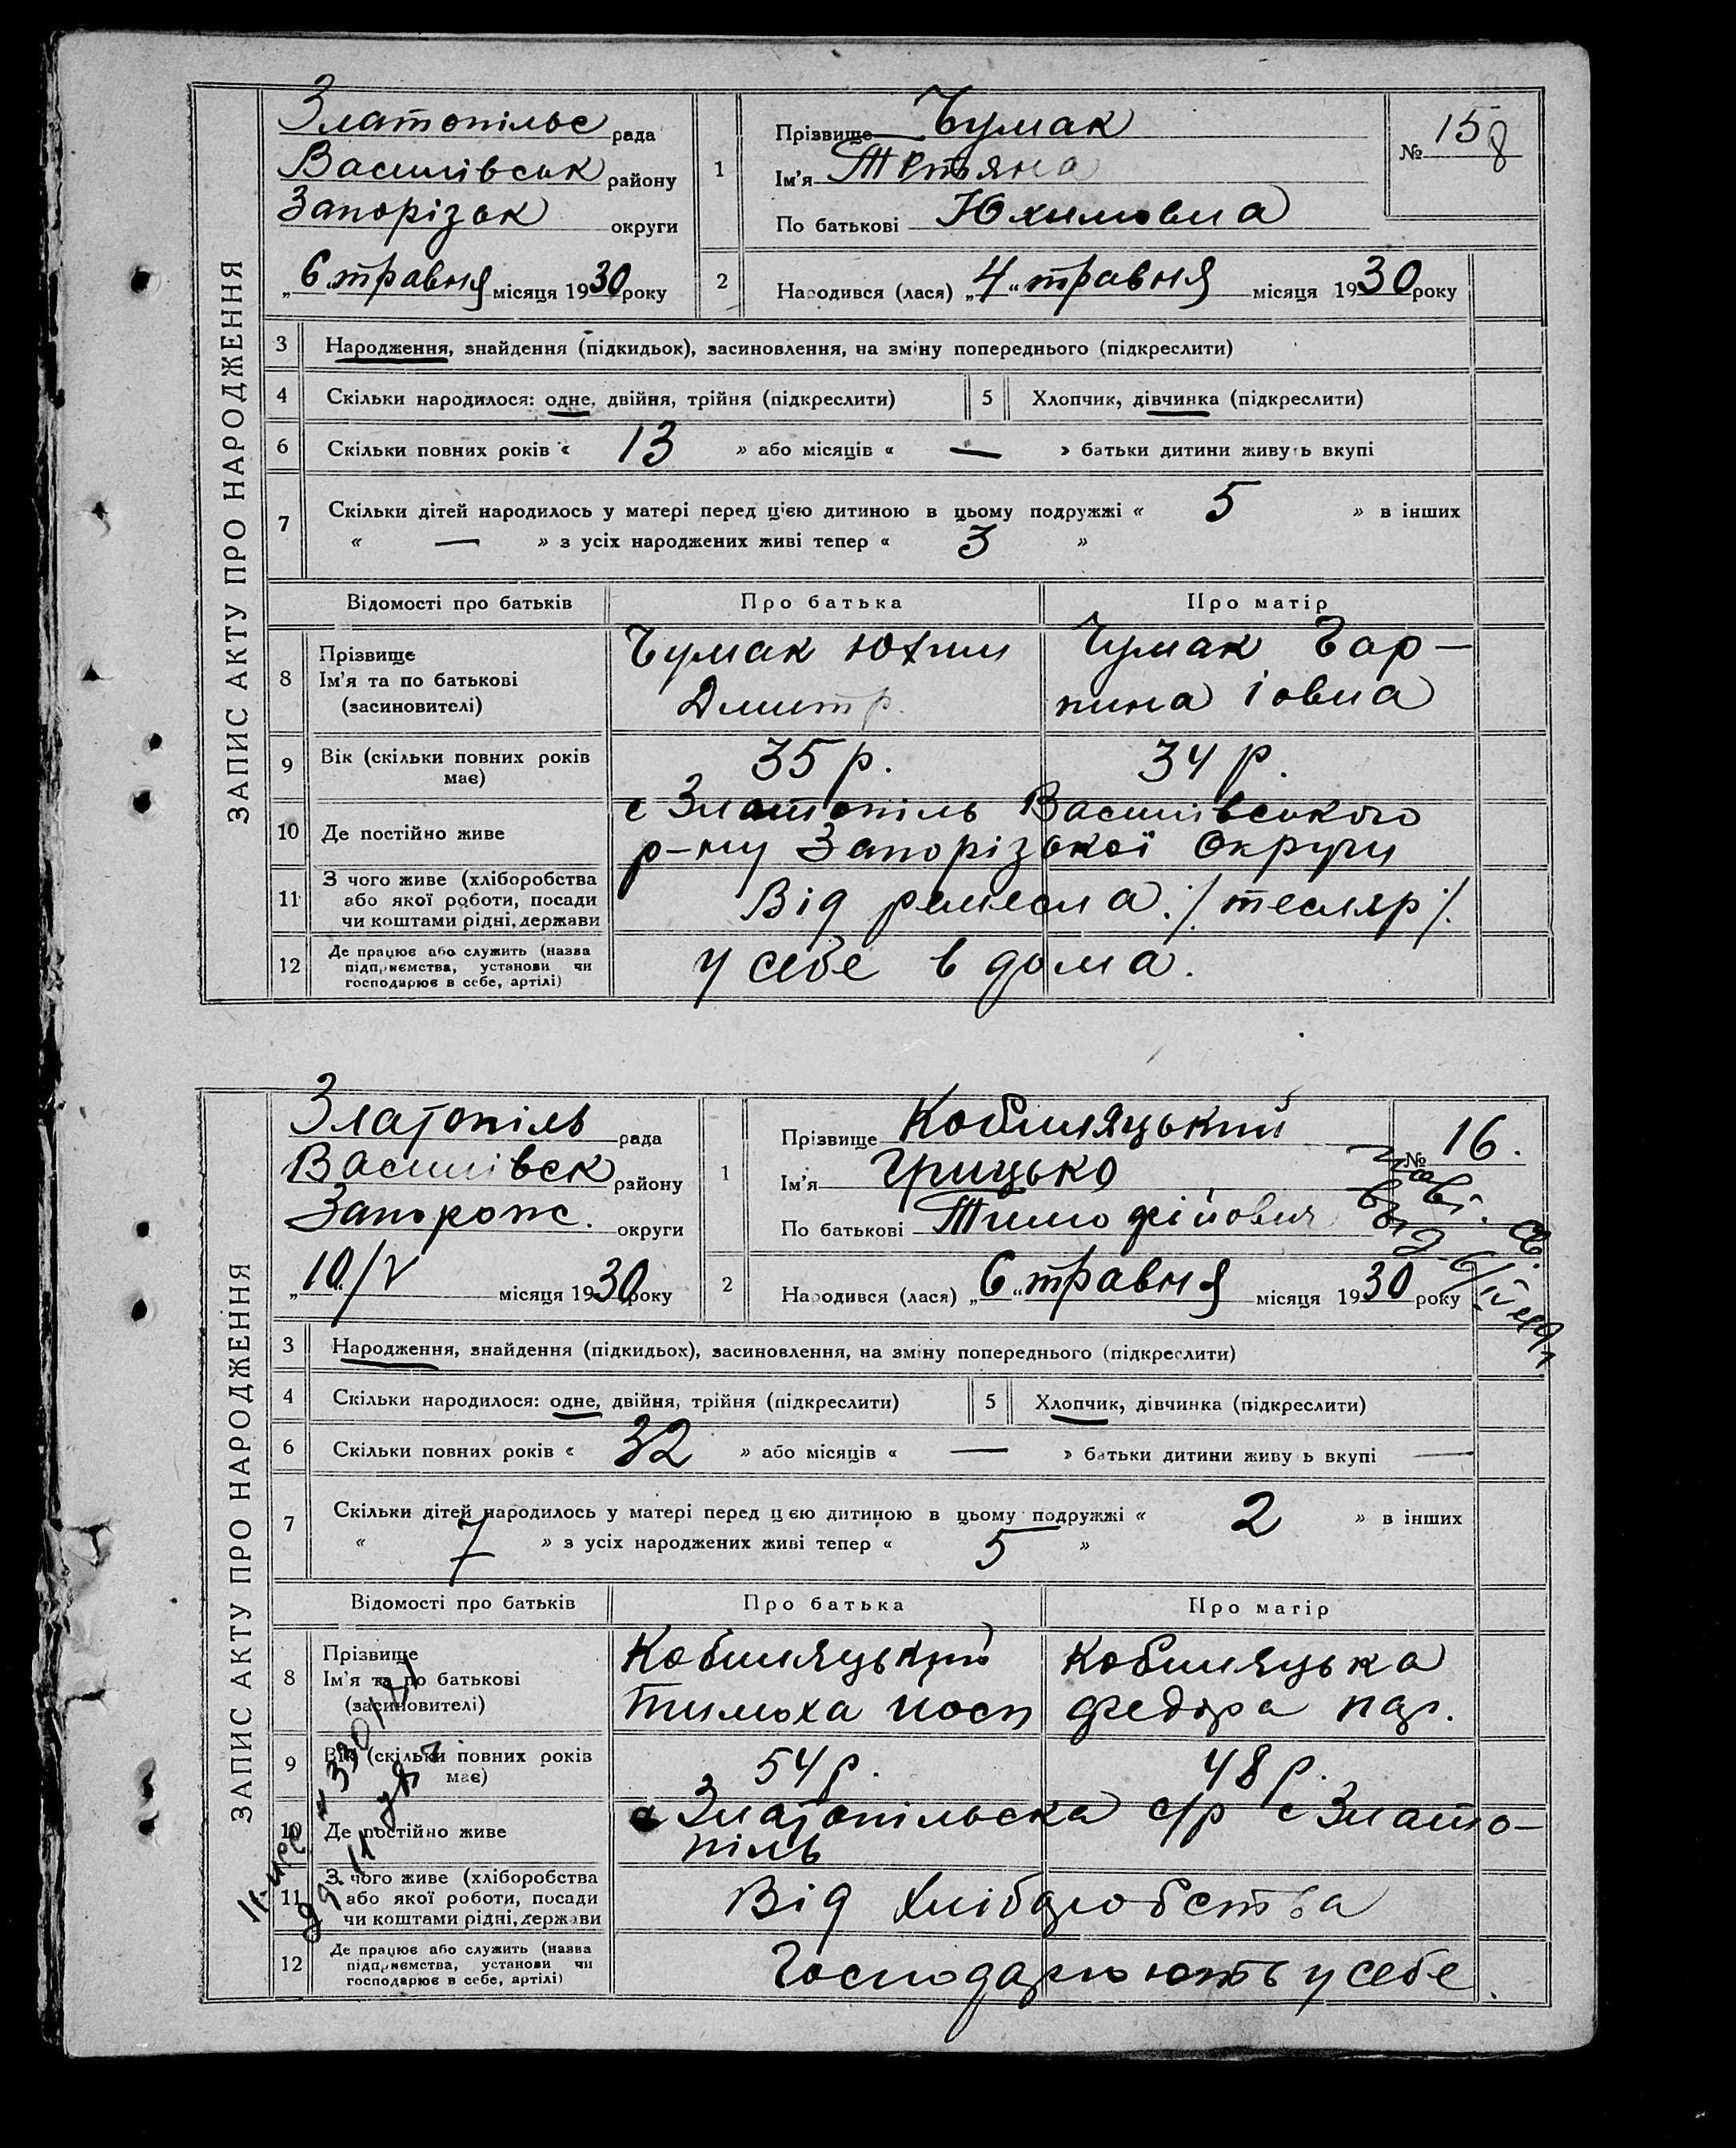 ЗАПИС АКТУ ПРО НАРОДЖЕННЯ
Златопільс рада
Василівськ району
Запорізьк округи
„6„ травня місяця 1930 року
1
Прізвище Чумак
Ім'я Тетяна
По батькові Юхимовна
№ 15
8
2
Народився (лася) „4“ травня місяця 1930 року
3 Народження, знайдення (підкидьок), засиновлення, на зміну попереднього (підкреслити)
4 Скільки народилося: одне, двійня, трійня (підкреслити) 5 Хлопчик, дівчинка (підкреслити)
6 Скільки повних років « 13 » або місяців « — » батьки дитини живуть вкупі
7 Скільки дітей народилось у матері перед цією дитиною в цьому подружжі « 5 » в інших
« — » з усіх народжених живі тепер « 3 »
Відомості про батьків Про батька Про матір
8 Прізвище
Ім'я та по батькові
(засиновителі)
Чумак Юхим
Дмитр.
Чумак Гар–
пина Іовна
9 Вік (скільки повних років
має)
35 р. 34 р.
10 Де постійно живе
с Златопіль Василівського
р–ну Запорізької Округи
11 З чого живе (хліборобства
або якої роботи, посади
чи коштами рідні, держави
Від ремесла ./ тесляр /.
12 Де працює або служить (назва
підприємства, установи чи
господарює в себе, артілі)
у себе в дома.
ЗАПИС АКТУ ПРО НАРОДЖЕННЯ
Златопіль рада
Василівск району
Запорожс. округи
„10/V місяця 1930 року
1
Прізвище Кобиляцький
Ім'я Грицько
По батькові Тимофійович
№ 16.
2
Народився (лася) „6“ травня місяця 1930 року
3 Народження, знайдення (підкидьох), засиновлення, на зміну попереднього (підкреслити)
4 Скільки народилося: одне, двійня, трійня (підкреслити) 5 Хлопчик, дівчинка (підкреслити)
6 Скільки повних років « 32 » або місяців « — » батьки дитини живу ь вкупі —
7 Скільки дітей народилось у матері перед цєю дитиною в цьому подружжі « 2 » в інших
« 7 » з усіх народжених живі тепер « 5 »
Відомості про батьків Про батька Про матір
8 Прізвище
Ім'я та по батькові
(засиновителі)
Кобиляцький
Тимоха Йосп
Кобиляцька
Федора
9 Вік (скільки повних років
має)
54 р. 48 р.
10 Де постійно живе
Златопільска с/р с Злато–
піль
11 З чого живе (хліборобства
або якої роботи, посади
чи коштами рідні, держави
Від хліборобства
12 Де працює або служить (назва
підприємства, установи чи
господарює в себе, артілі)
Господарюють у себе.